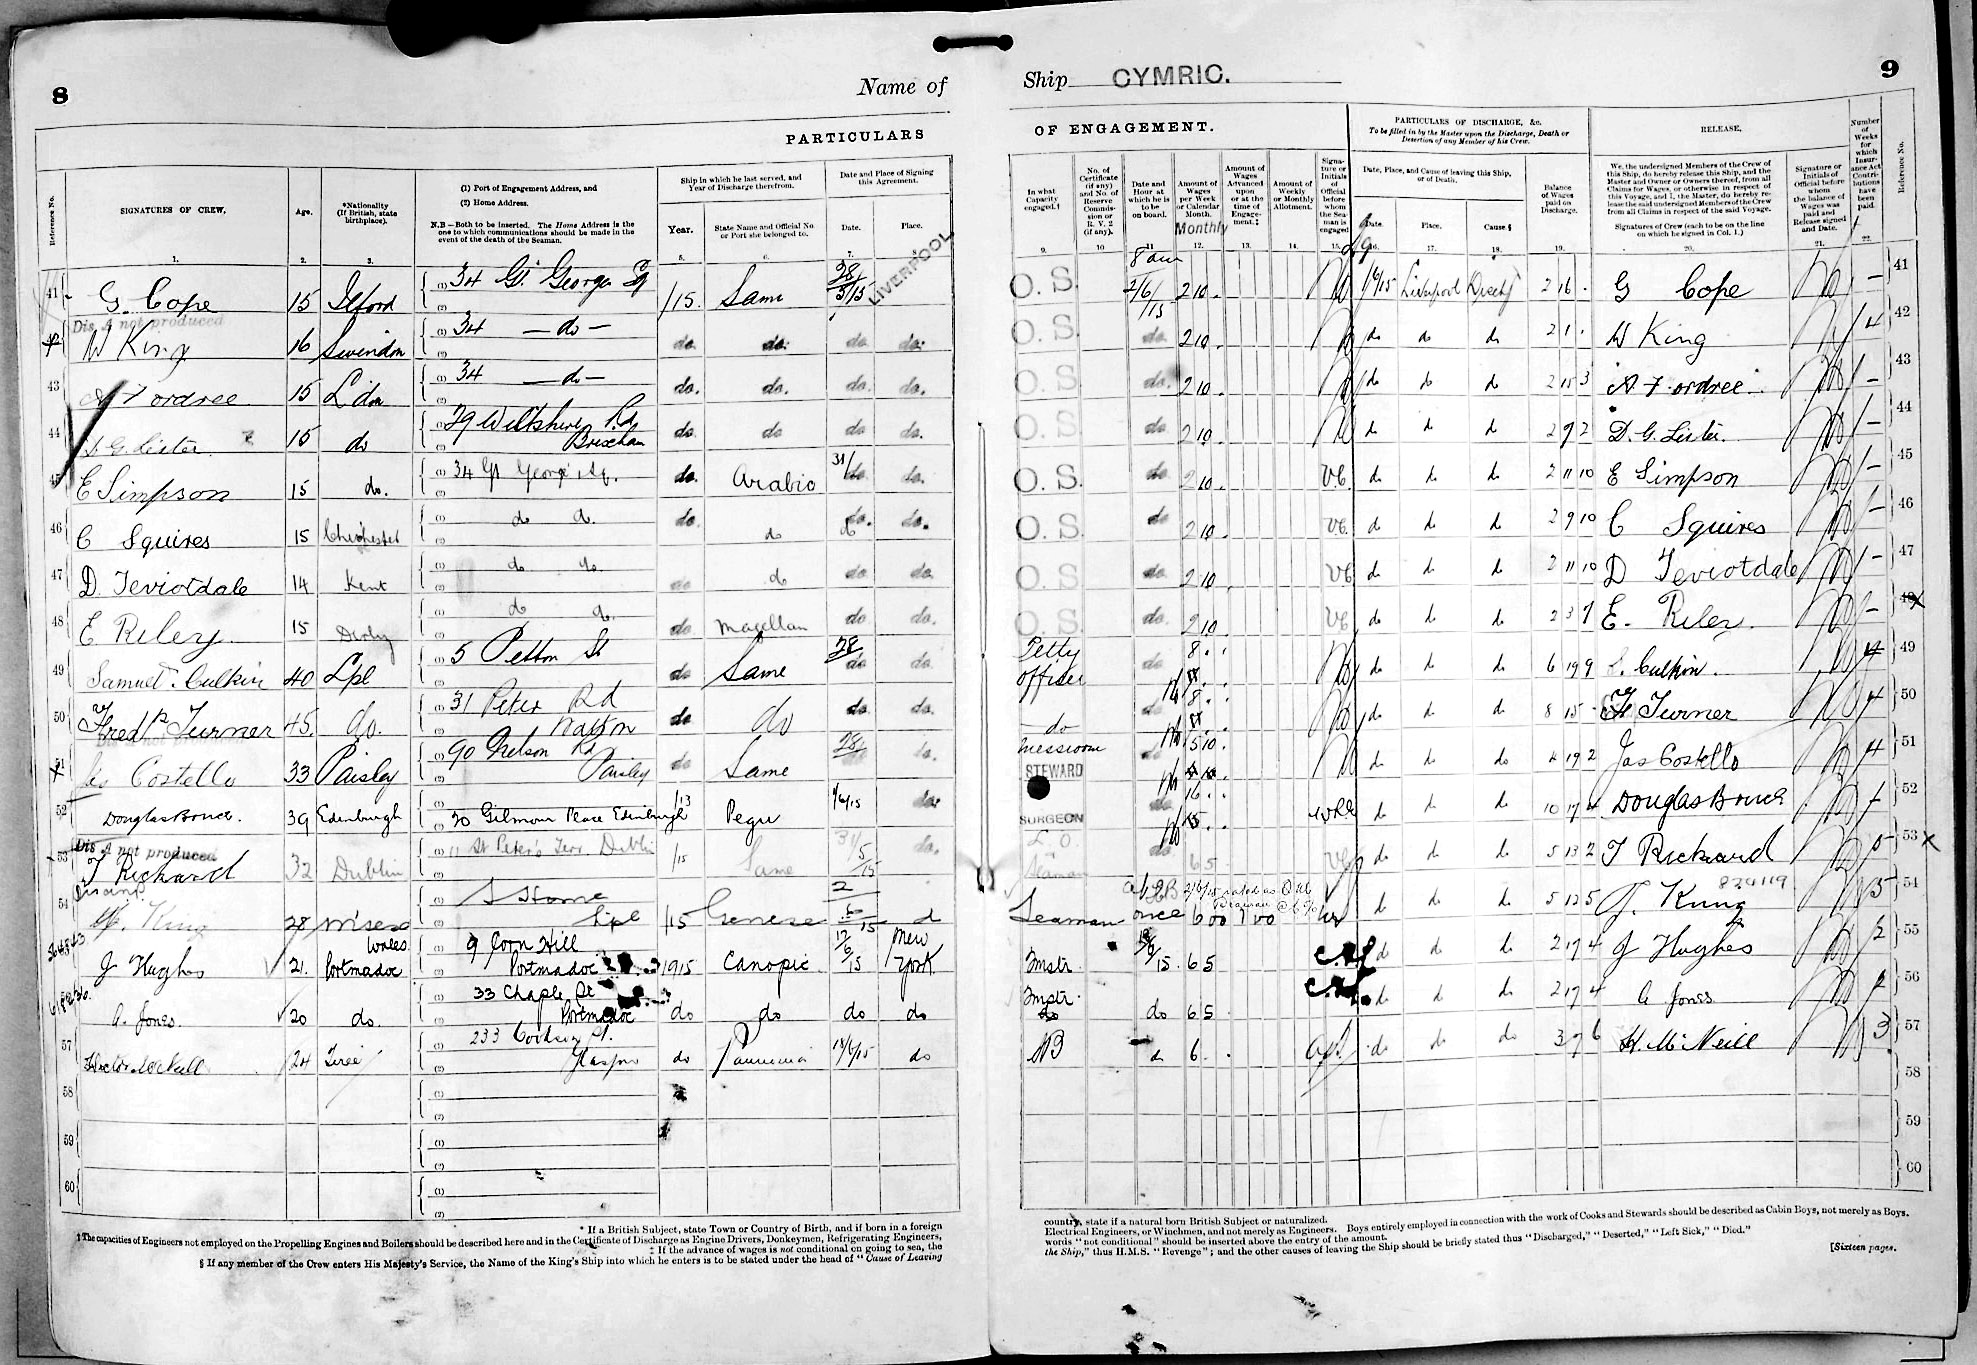 8
Name of
PARTICULARS
Reference No.
SIGNATURES OF CREW.
Age.
*Nationality
(If British, state
birthplace).
(1) Port of Engagement Address, and
(2) Home Address.
N.B—Both to be inserted. The Home Address is the
one to which communications should be made in the
event of the death of the Seaman.
Ship in which he last served, and
Year of Discharge therefrom.
Year.
State Name and Official No.
or Port she belonged to.
Date and Place of Signing
this Agreement.
Date.
Place.
1. 2. 3. 5. 6. 7.
LIVERPOOL
41 G. Cope 15 Ilford 34 Gt George Sq /15. Same 28/5/15
Dis. A not produced
42 W King 16 Swindon 34 — do — do. do. do. do.
43 A Fordree 15 L'don 34 — do — do. do. do. do.
44 D. G. Lister 15 do 29 Wiltshire Rd
Brixham do do do do.
45 E Simpson 15 do. 34 Gt George Sq. do. Arabic 31/ do. do.
46 C Squires 15 Chichester do do. do. do do. do.
47 D. Teviotdale 14 Kent do do. do do do do.
48 E Riley. 15 Derby do do. do Magellan do do.
49 Samuel. Culkin 40 Lpl 5 Petton St do Same 28/ do do.
50 Fredk Turner 45. do. 31 Peter Rd
Walton do do do. do.
51 Jas Costello 33 Paisley 90 Nelson Rd
Paisley do Same 28/ do.
52 Douglas Bruce. 39 Edinburgh 20 Gilmour Place Edinburgh /13 Pegu 1/6/15 do.
Dis. A not produced
53 T Rickard 32 Dublin 11 St Peter's Terr. Dublin /15 Same 31/5/15 do.
54 King 28 S Home
Lipl /15 2/6/15 d
55 J Hughes 21. Wales.
Portmadoc 9 Corn Hill
Portmadoc 1915 Canopic 12/6/15 New York.
56 A. Jones. 20 do. 33 Chaple St
Portmadoc do do do do
57 Hector McNeill 24 Tiree 233
Glasgow do do
58
59
60
* If a British Subject, state Town or Country of Birth, and if born in a foreign
† The capacities of Engineers not employed on the Propelling Engines and Boilers should be described here and in the Certificate of Discharge as Engine Drivers, Donkeymen, Refrigerating Engineers,
‡ If the advance of wages is not conditional on going to sea, the
§ If any member of the Crew enters His Majesty's Service, the Name of the King's Ship into which he enters is to be stated under the head of "Cause of Leaving
Ship CYMRIC.
9
OF ENGAGEMENT.
PARTICULARS OF DISCHARGE, &c.
To be filled in by the Master upon the Discharge, Death or
Desertion of any Member of his Crew.
RELEASE.
In what
Capacity
engaged.†
No. of
Certificate
(if any)
and No. of
Reserve
Commission
or
R. V. 2
(if any).
Date and
Hour at
which he is
to be
on board.
Amount of
Wages
per Week
or Calendar
Month.
Monthly
Amount of
Wages
Advanced
upon
or at the
time of
Engagement.‡
Amount of
Weekly
or Monthly
Allotment.
Signature or
Initials
of
Official
before
whom
the Seaman is
engaged
Date, Place, and Cause of leaving this Ship,
or of Death.
Date.
Place.
Cause.§
Balance
of Wages
paid on
Discharge.
We, the undersigned Members of the Crew of
this Ship, do hereby release this Ship, and the
Master and Owner or Owners thereof, from all
Claims for Wages, or otherwise in respect of
this Voyage, and I, the Master, do hereby release the said undersigned Members of the Crew
from all Claims in respect of the said Voyage.
Signatures of Crew (each to be on the line
on which he signed in Col. 1.)
Signature or
Initials of
Official before
whom
the balance of
Wages was
paid and
Release signed
and Date.
Number
of
Weeks
for
which
Insurance Act
Contributions
have
been
paid.
Reference No.
9. 10 11 12. 13. 14. 15. 16. 17. 18. 19. 20. 21. 22.
O. S. 8 am 2/6/15 2 10. Liverpool 2 16. G Cope — 41
O. S. do. 2 10. do do do 2 1. W King 4 42
O. S. do. 2 10. do do do 2 15 3 A Fordree. — 43
O. S. do 2 10. d d d 2 9 2 D. G. Lister. — 44
O. S. do 2 10. VC. d d d 2 11 10 E Simpson — 45
O. S. do 2 10. VC. d d d 2 9 10 C Squires — 46
O. S. do. 2 10. VC d d d 2 11 10 D Teviotdale — 47
O. S. do. 2 10 VC d d d 2 3 E. Riley. — 48
Petty
officer do 8. . d d d 6 19 9 S. Culkin. 4 49
do do 8. . d d d 8 15 F Turner 4 50
Messroom
STEWARD do 5 10. d d do 4 19 2 Jas Costello 4 51
SURGEON do. d d d 10 17 4 Douglas Bruce 52
L. O.
do 6 5 VC d d d 5 13 2 T Rickard 5 53
Seaman once d d d 5 12 5 King 824119 5 54
Tmstr. /15. 6 5 d d d 2 17 4 J Hughes 2 55
Tmstr.
do do 6 5 d d d 2 17 4 A Jones 2 56
AB d 6. . do d do 3 7 6 H. McNeill 3 57
58
59
60
country, state if a natural born British Subject or naturalized.
Electrical Engineers, or Winchmen, and not merely as Engineers. Boys entirely employed in connection with the work of Cooks and Stewards should be described as Cabin Boys, not merely as Boys.
words "not conditional" should be inserted above the entry of the amount.
the Ship," thus H.M.S. "Revenge"; and the other causes of leaving the Ship should be briefly stated thus "Discharged," "Deserted," "Left Sick," "Died."
[Sixteen pages.